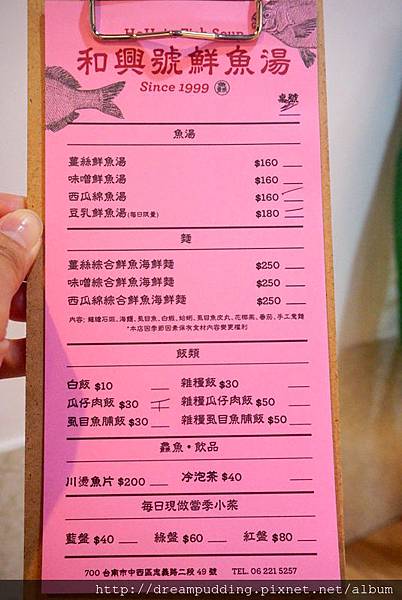 HeHsin Fish Soup
和興號鮮魚湯
Since 1999
魚湯
薑絲鮮魚湯 $160
味噌鮮魚湯 $160
西瓜綿魚湯 $160
豆乳鮮魚湯(每日限量) $180
麵
薑絲綜合鮮魚海鮮麵 $250
味噌綜合鮮魚海鮮麵 $250
西瓜綿綜合鮮魚海鮮麵 $250
*本店因季節因素保有食材內容變更權利
飯類
白飯 $10 雜糧飯 $30
瓜仔肉飯 $30 雜糧瓜仔肉飯 $50
虱目魚脯飯 $30 雜糧虱目魚脯飯 $50
鱻魚・飲品
川燙魚片 $200 冷泡茶 $40
每日現做當季小菜
藍盤 $40 綠盤 $60 紅盤 $80
700 台南市中西區忠義路二段 49 號 TEL. 06 221 5257
http://dreampudding.pixnet.net/album